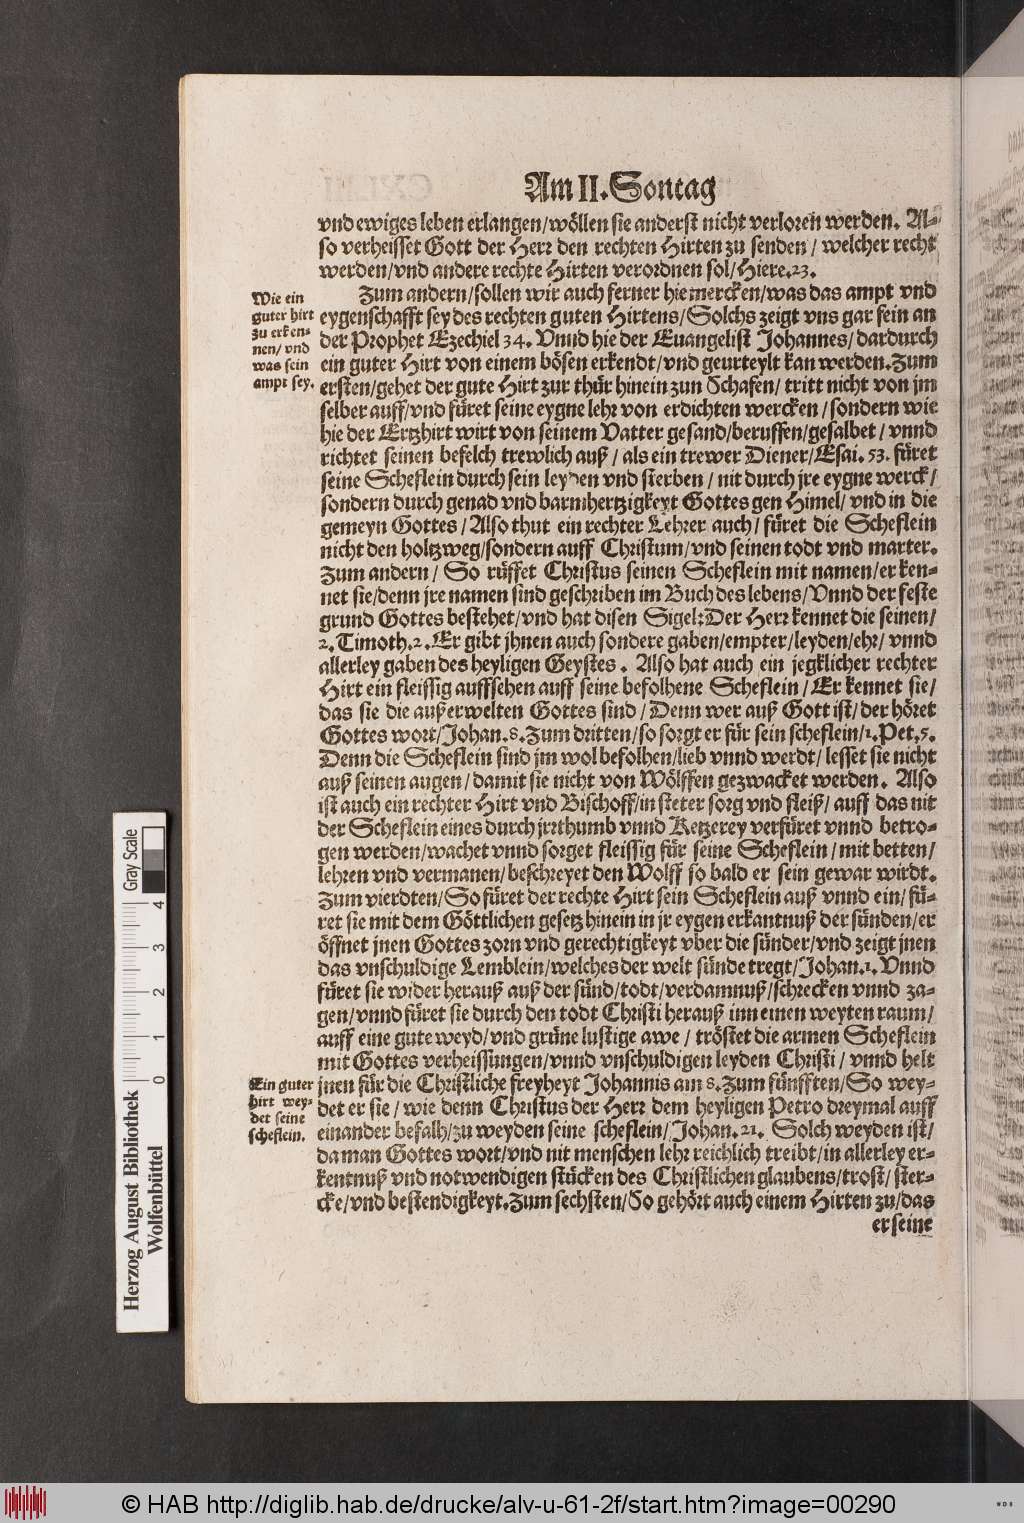 Am II. Sontag
vnd ewiges leben erlangen/wöllen sie anderst nicht verloren werden. Al-
so verheisset Gott der Herr den rechten Hirten zu senden / welcher recht
werden/vnd andere rechte Hirten verordnen sol/Hiere.23.
Wie ein
guter hirt
zu erken-
nen/ vnd
was sein
ampt sey.
Zum andern/sollen wir auch ferner hie mercken/was das ampt vnd
eygenschafft sey des rechten guten Hirtens/Solchs zeigt vns gar fein an
der Prophet Ezechiel 34. Vnnd hie der Euangelist Johannes/dardurch
ein guter Hirt von einem bösen erkendt/vnd geurteylt kan werden.Zum
ersten/gehet der gute Hirt zur thür hinein zun Schafen/ tritt nicht von jm
selber auff/vnd füret seine eygne lehr von erdichten wercken /sondern wie
hie der Ertzhirt wirt von seinem Vatter gesand/beruffen/gesalbet / vnnd
richtet seinen befelch trewlich auß / als ein trewer Diener/Esai. 53. füret
seine Scheflein durch sein leyden vnd sterben / nit durch jre eygne werck/
sondern durch genad vnd barmhertzigkeyt Gottes gen Himel/ vnd in die
gemeyn Gottes / Also thut ein rechter Lehrer auch / füret die Scheflein
nicht den holtzweg/sondern auff Christum/vnd seinen todt vnd marter.
Zum andern / So rüffet Christus seinen Scheflein mit namen/er ken-
net sie/denn jre namen sind geschriben im Buch des lebens/Vnnd der feste
grund Gottes bestehet/vnd hat disen Sigel:Der Herr kennet die seinen/
2. Timoth.2. Er gibt jhnen auch sondere gaben/empter/leyden/ehr/ vnnd
allerley gaben des heyligen Geystes . Also hat auch ein jegklicher rechter
Hirt ein fleissig auffsehen auff seine befolhene Scheflein / Er kennet sie/
das sie die außerwelten Gottes sind / Denn wer auß Gott ist/ der höret
Gottes wort/Johan. 8. Zum dritten/so sorgt er für sein scheflein/1. Pet. 5.
Denn die Scheflein sind jm wol befolhen/lieb vnnd werdt/ lesset sie nicht
auß seinen augen / damit sie nicht von Wölffen gezwacket werden . Also
ist auch ein rechter Hirt vnd Bischoff/in steter sorg vnd fleiß/ auff das nit
der Scheflein eines durch jrrthumb vnnd Ketzerey verfüret vnnd betro-
gen werden/wachet vnnd sorget fleissig für seine Scheflein / mit betten/
lehren vnd vermanen/ beschreyet den Wolff so bald er sein gewar wirdt.
Zum vierdten/So füret der rechte Hirt sein Scheflein auß vnnd ein/ fü-
ret sie mit dem Göttlichen gesetz hinein in jr eygen erkantnuß der sünden/er
öffnet jnen Gottes zorn vnd gerechtigkeyt vber die sünder/vnd zeigt jnen
das vnschuldige Lemblein/welches der welt sünde tregt/Johan.1. Vnnd
füret sie wider herauß auß der sünd/todt/verdamnuß/schrecken vnnd za-
gen/vnnd füret sie durch den todt Christi herauß inn einen weyten raum/
auff eine gute weyd/vnd grüne lustige awe / tröstet die armen Scheflein
mit Gottes verheissungen/vnnd vnschuldigen leyden Christi / vnnd helt
Ein guter
hirt wey-
det seine
scheflein.
jnen für die Christliche freyheyt Johannis am 8. Zum fünfften/So wey-
det er sie / wie denn Christus der Herr dem heyligen Petro dreymal auff
einander befalh/zu weyden seine scheflein/Johan.21. Solch weyden ist/
da man Gottes wort/vnd nit menschen lehr reichlich treibt/in allerley er-
kentnuß vnd notwendigen stücken des Christlichen glaubens/trost/ ster-
cke/vnd bestendigkeyt.Zum sechsten/So gehört auch einem Hirten zu/das
er seine
Gray Scale
0 1 2 3 4
Herzog August Bibliothek
Wolfenbüttel
© HAB http://diglib.hab.de/drucke/alv-u-61-2f/start.htm?image=00290